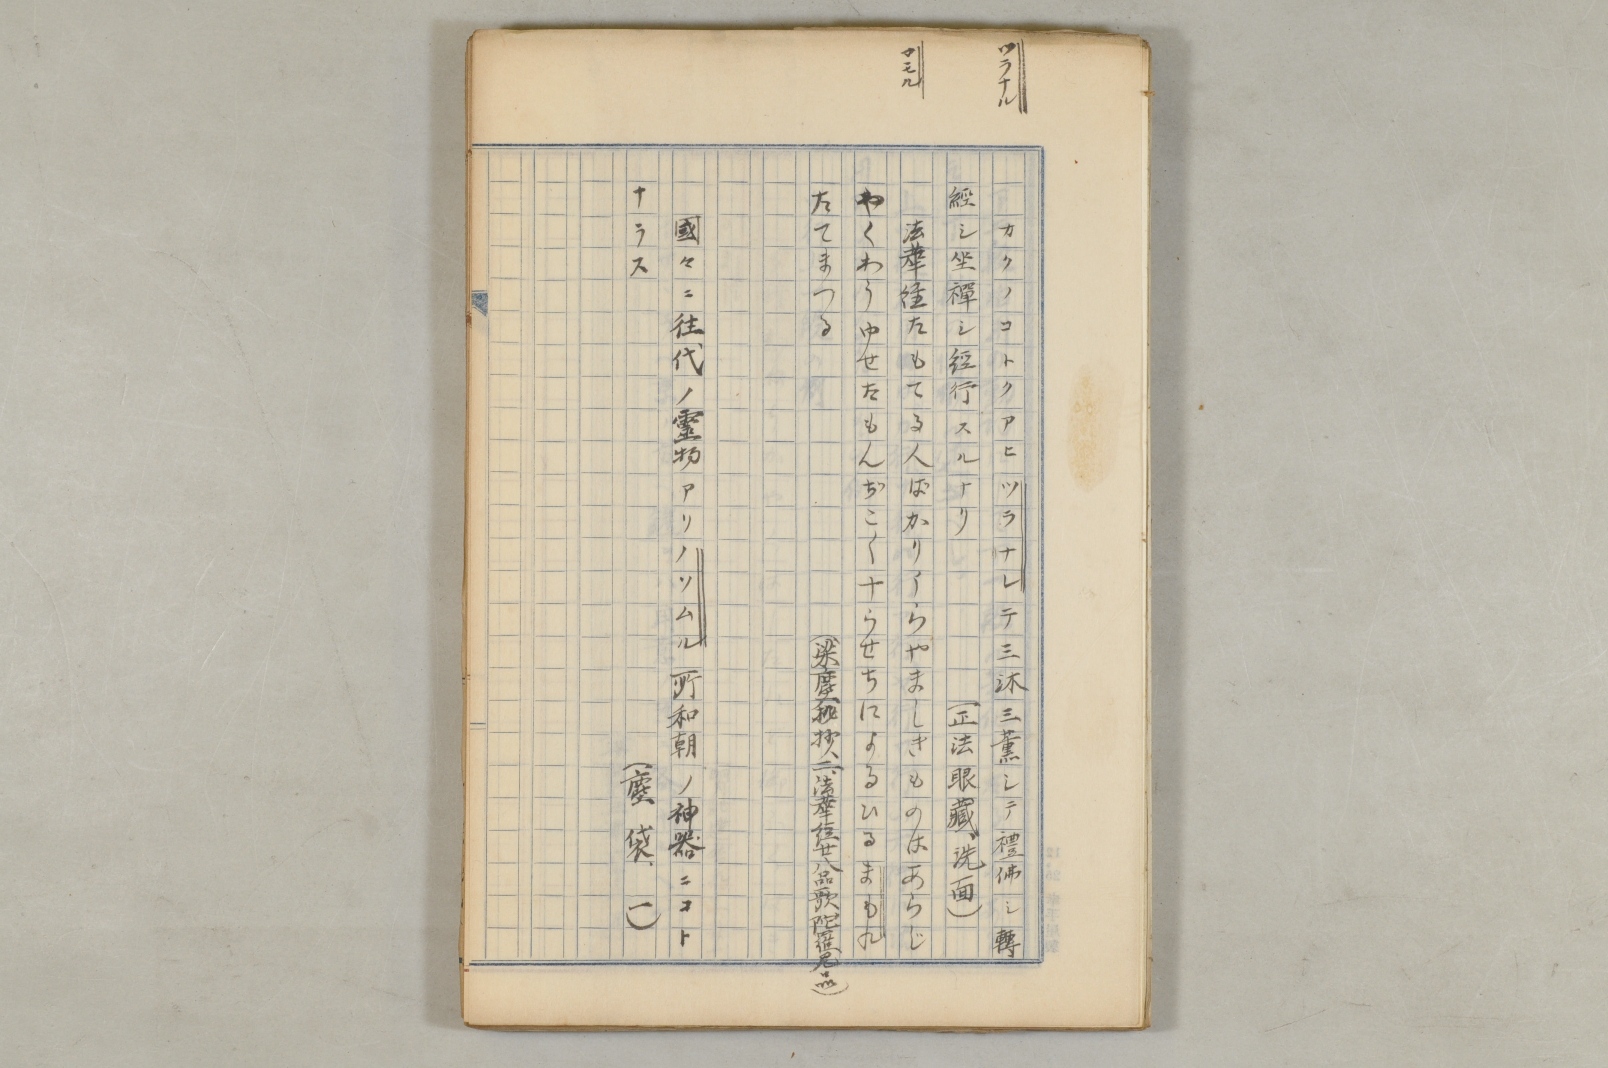 ツラナル
マモル
カクノコトクアヒツラナレテ三沐三薫シテ禮佛シ轉
經シ坐禪シ経行スルナリ
(正法眼藏、洗面)
法華経たもてる人ばかりうらやましきものはあらじ
やくわうゆせたもんぢこく十らせちによるひるまもれ
たてまつる
(梁塵秘抄、二、法華経廿八品歌陀羅尼品)
國々ニ往代ノ霊物アリノソムル所和朝ノ神器ニコト
ナラス
(塵袋、一)